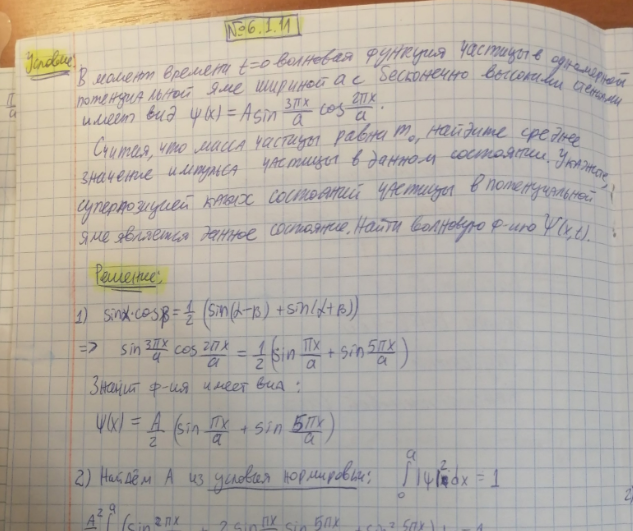 №6.1.11
Условие: В момент времени t=0 волновая функция частицы в одномерной
потенциальной яме шириной a с бесконечно высокими стенками
имеет вид ψ(x) = A sin 3πx/a cos 2πx/a.
Считая, что масса частицы равна m₀, найдите среднее
значение импульса частицы в данном состоянии. Укажите,
суперпозицией каких состояний частицы в потенциальной
яме является данное состояние. Найти волновую ф-ию Ψ(x,t).
Решение:
1) sinα·cosβ = 1/2 (sin(α-β) + sin(α+β))
=> sin 3πx/a cos 2πx/a = 1/2 (sin πx/a + sin 5πx/a)
Значит ф-ия имеет вид:
ψ(x) = A/2 (sin πx/a + sin 5πx/a)
2) Найдём A из условия нормировки: ∫₀ᵃ |ψ|² dx = 1